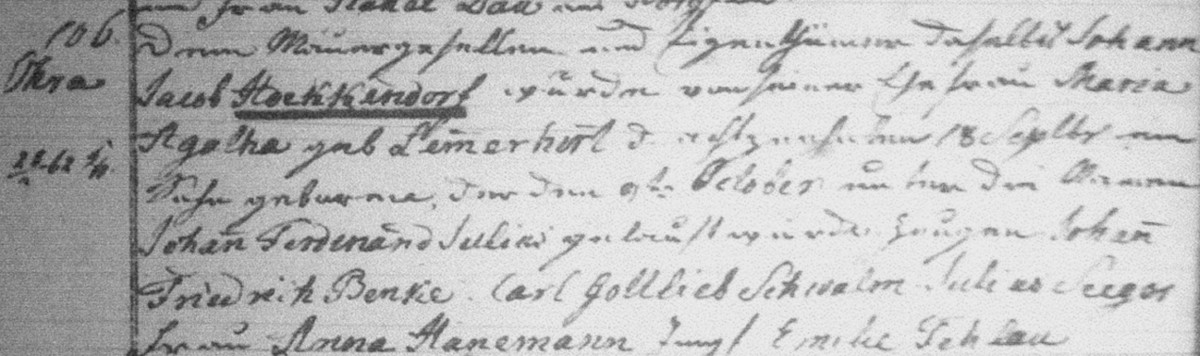 106.
Ohra
Dem Mauergesellen und Eigenthümer daselbst Johann
Jacob Hoekkendorf wurde von seiner Ehefrau Maria
Agatha geb d. achtzehnten 18 Septbr ein
Sohn geboren, der den 9t October unter den Namen
Johan̄ Ferdinand Julius getauft wurde. Zeugen Johan̄
Friedrich Benke. Carl Gottlieb Schwalm Julius Seeger
Frau Anna Hanemann Jungf Emilie